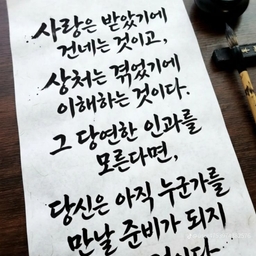 사랑은 받았기에
건네는 것이고,
상처는 겪었기에
이해하는 것이다.
그 당연한 인과를
모른다면,
당신은 아직 누군가를
만날 준비가 되지
것이다